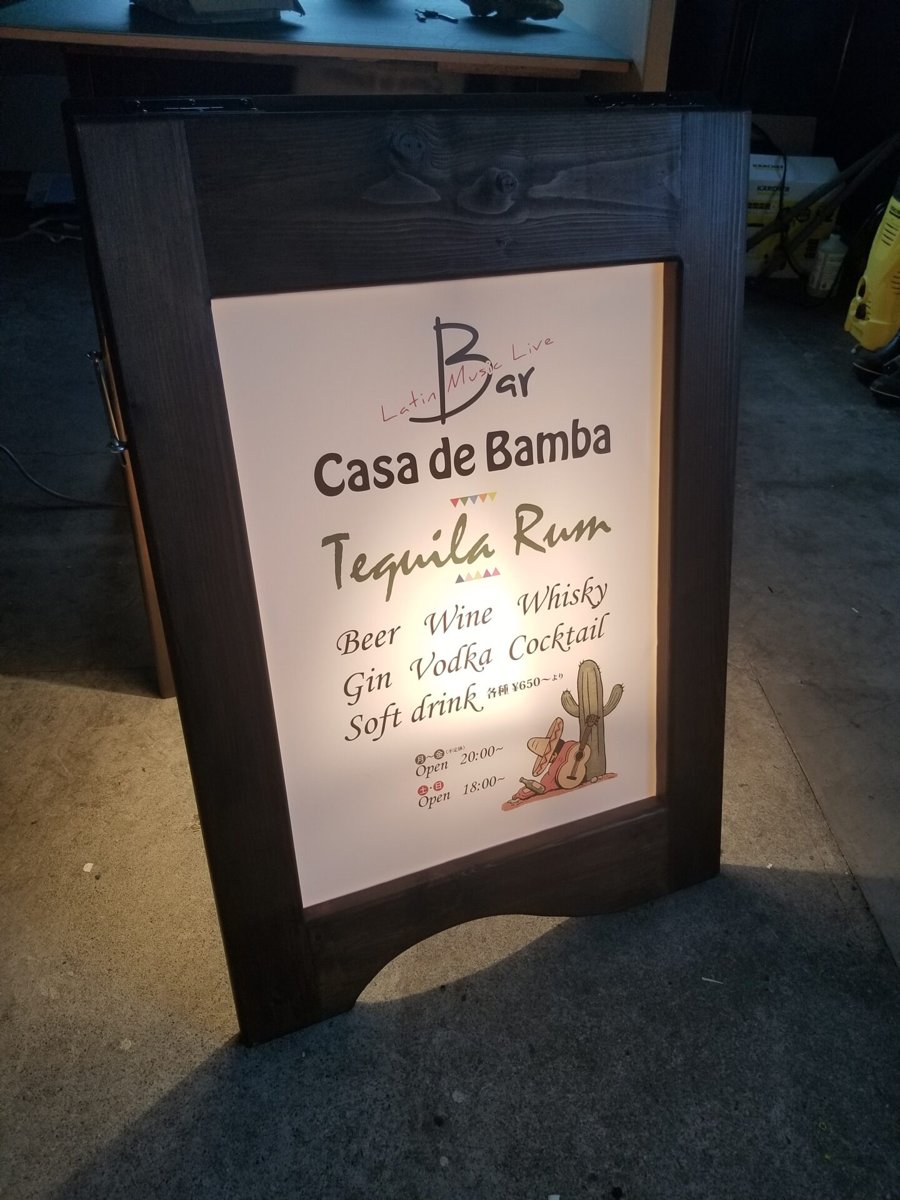 Bar
Latin Music Live
Casa de Bamba
Tequila Rum
Beer Wine Whisky
Gin Vodka Cocktail
Soft drink 各種 ¥650～より
月～金(不定休)
Open 20:00~
土・日
Open 18:00~
KÄRCHER